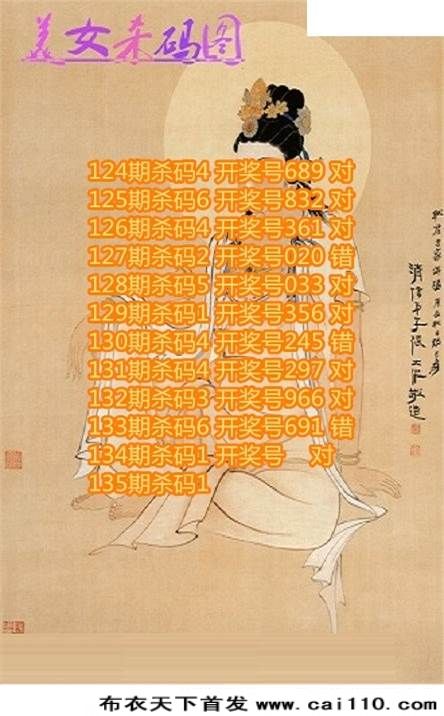 美女杀码图
124期杀码4 开奖号689 对
125期杀码6 开奖号832 对
126期杀码4 开奖号361 对
127期杀码2 开奖号020 错
128期杀码5 开奖号033 对
129期杀码1 开奖号356 对
130期杀码4 开奖号245 错
131期杀码4 开奖号297 对
132期杀码3 开奖号966 对
133期杀码6 开奖号691 错
134期杀码1 开奖号 对
135期杀码1
布衣天下首发 www.cai110.com